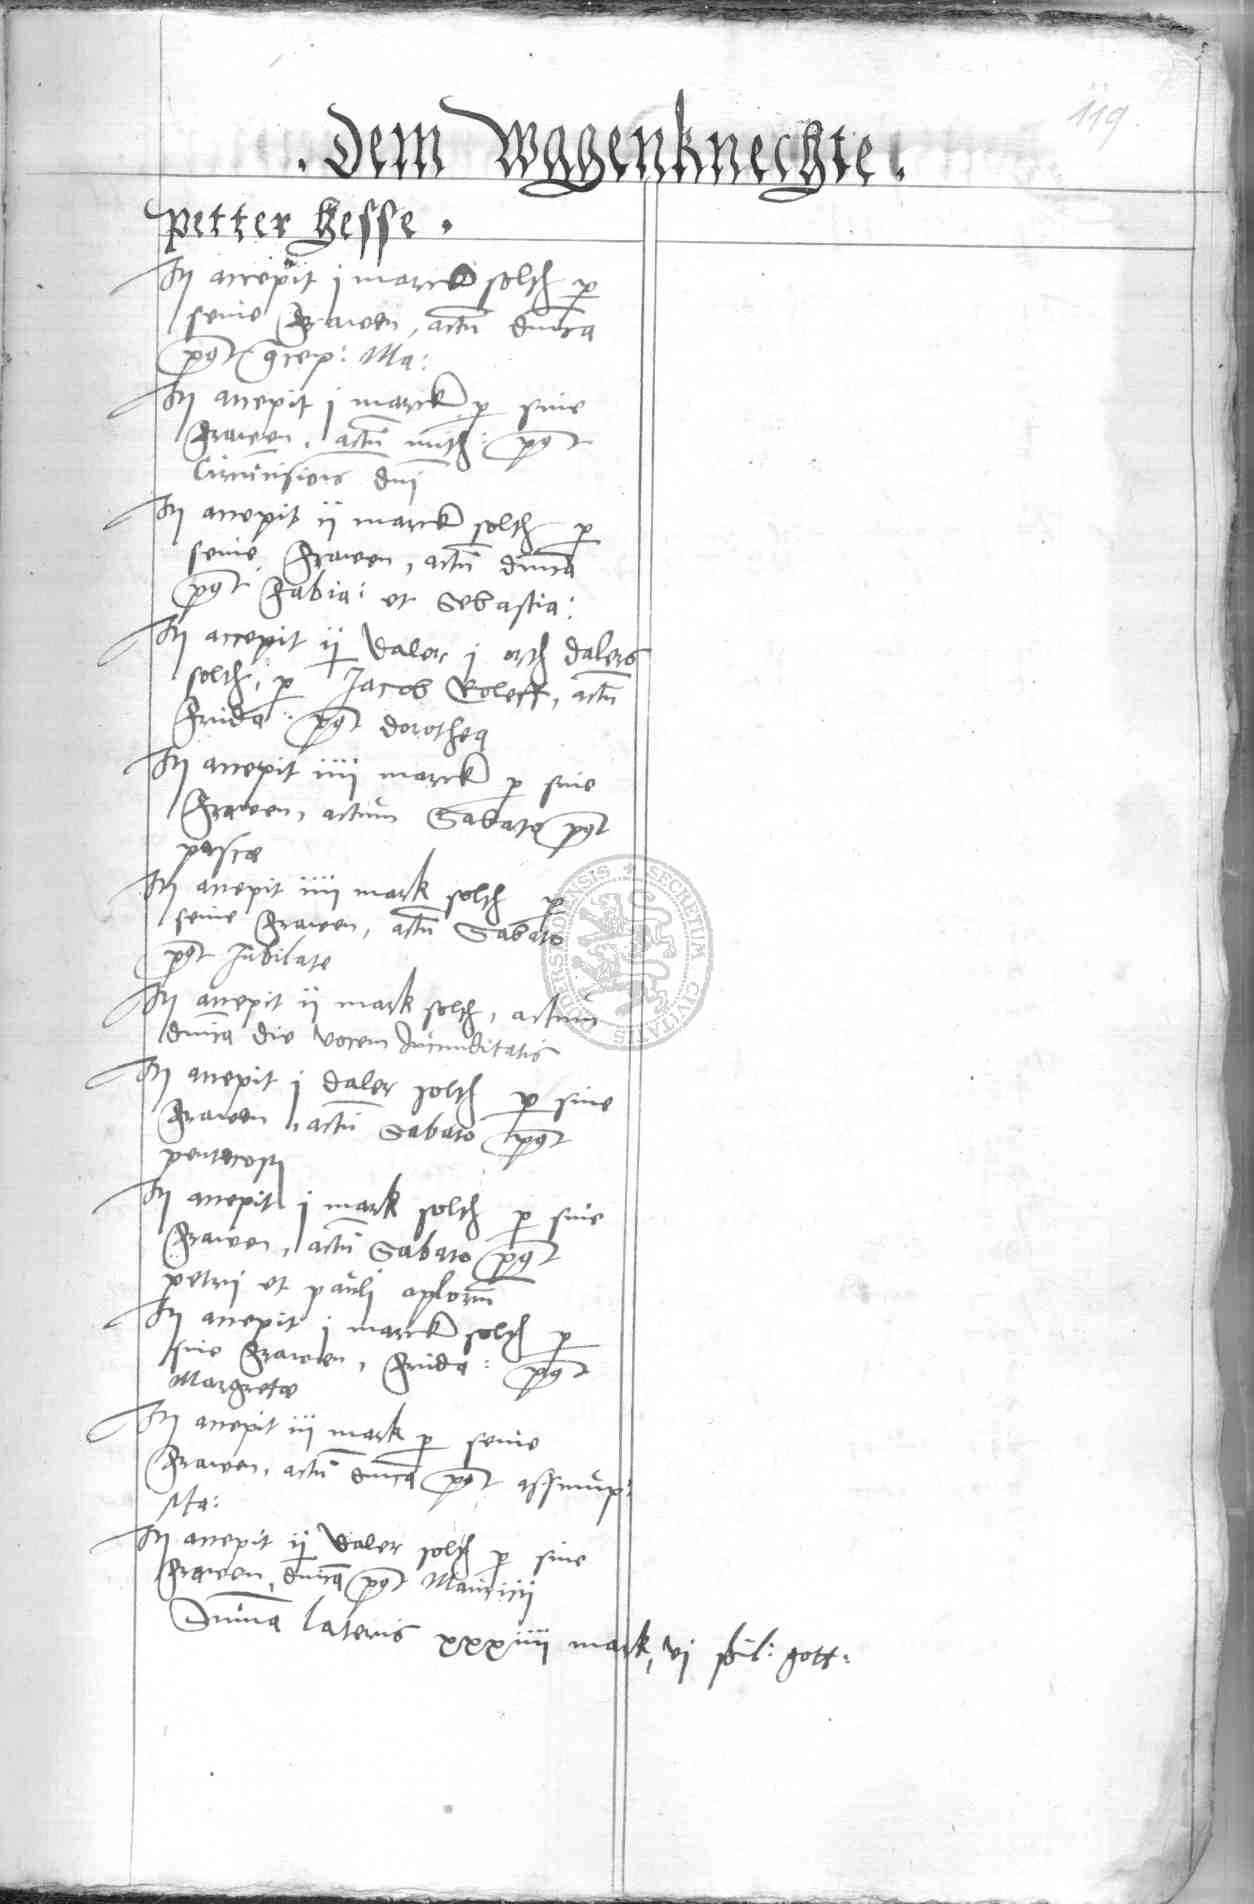 119.
. Dem Wagenknechte .
petter hesse .
It accepit j marck solth p
seine frawen, actu dnica
post concep: Ma:
It accepit j marck p sine
frawen, actu mith: post
Circucisiois dni
It accepit ij marck solth p
seine frawen, actu dnica
post fabia: et Sebastia:
It accepit ij daler j orth dalers
solth, p Jacob Roleff, actu
frida: post dorothea
It accepit iiij marck p sine
frawen, actum Sabato post
pasce
It accepit iiij mark solth p
seine frawen, actu Sabato
post Jubilate
It accepit ij mark solth, actum
dnica die vocem Jucunditatis
It accepit j daler solth p sine
frawen, actu Sabato post
pentecost
It accepit j mark solth p sine
frawen, actu Sabato post
petri et pauli aplorum
It accepit j marck solth p
sine frawen, frida: post
Margrete
It accepit iij mark p seine
frawen, actu dnica post assump:
Ma:
It accepit ij daler solth p sine
frawen, dnica post Mauricij
Suma lateris xxxiiij mark, vj schil: gott:
SECRETUM CIVITATIS DUDERSTADENSIS